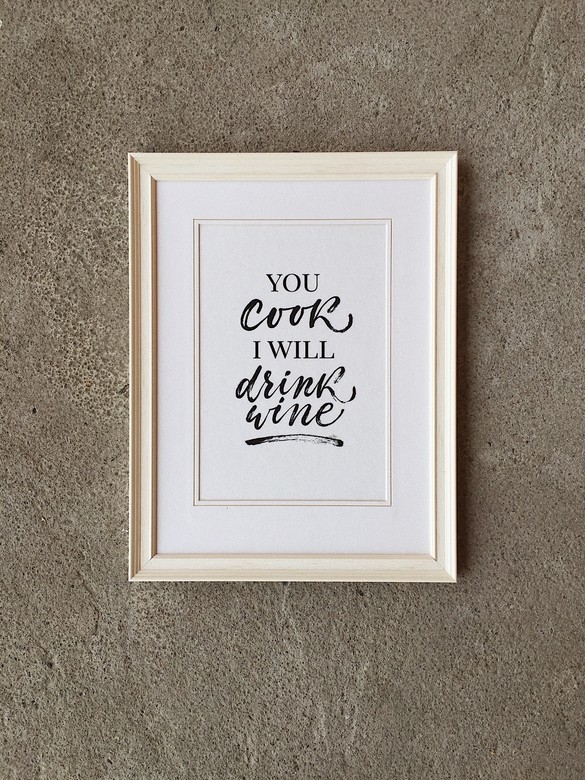 YOU
cook
I WILL
drink
wine